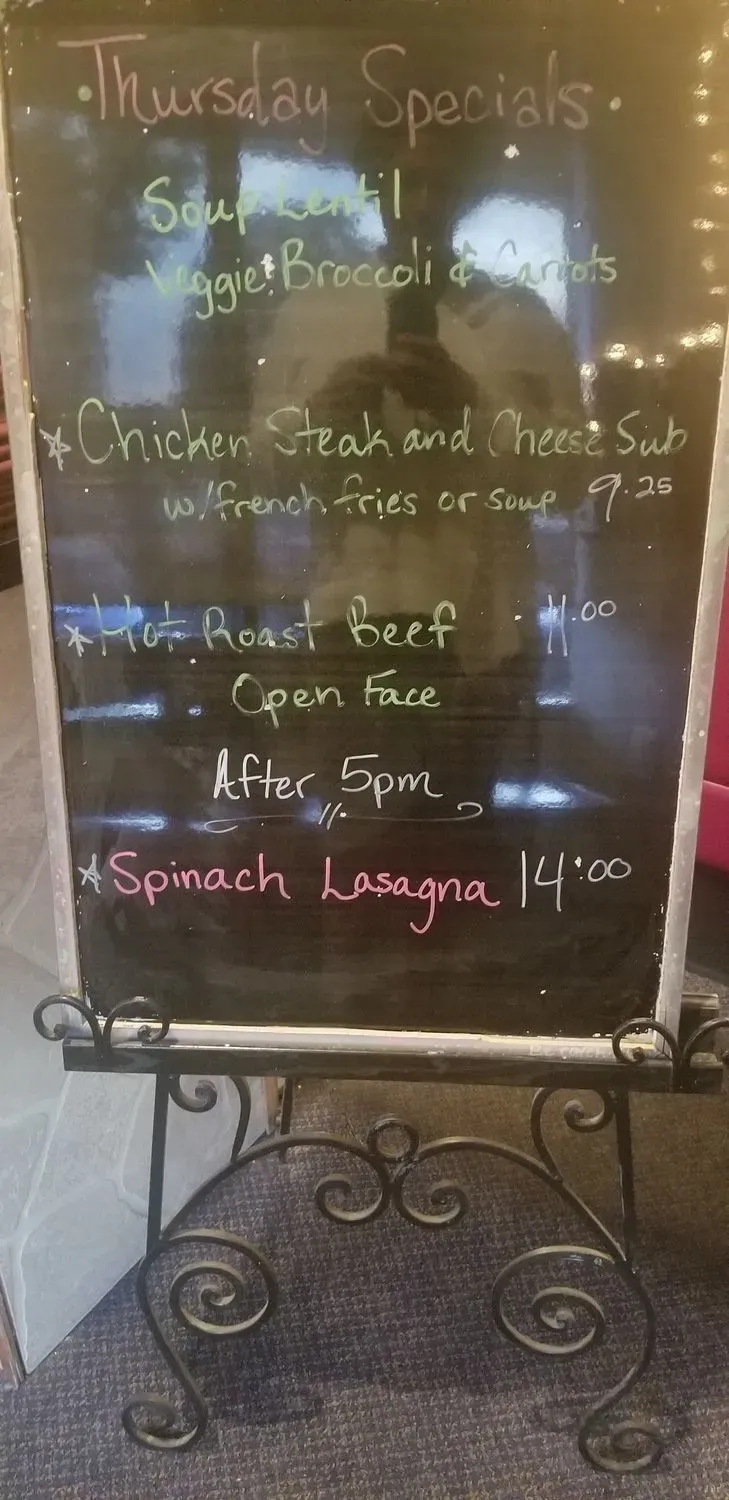 • Thursday Specials •
Soup Lentil
Veggie: Broccoli & Carrots
☆ Chicken Steak and Cheese Sub
w/french fries or soup 9.25
☆ Hot Roast Beef 11.00
Open Face
After 5pm
☆ Spinach Lasagna 14.00